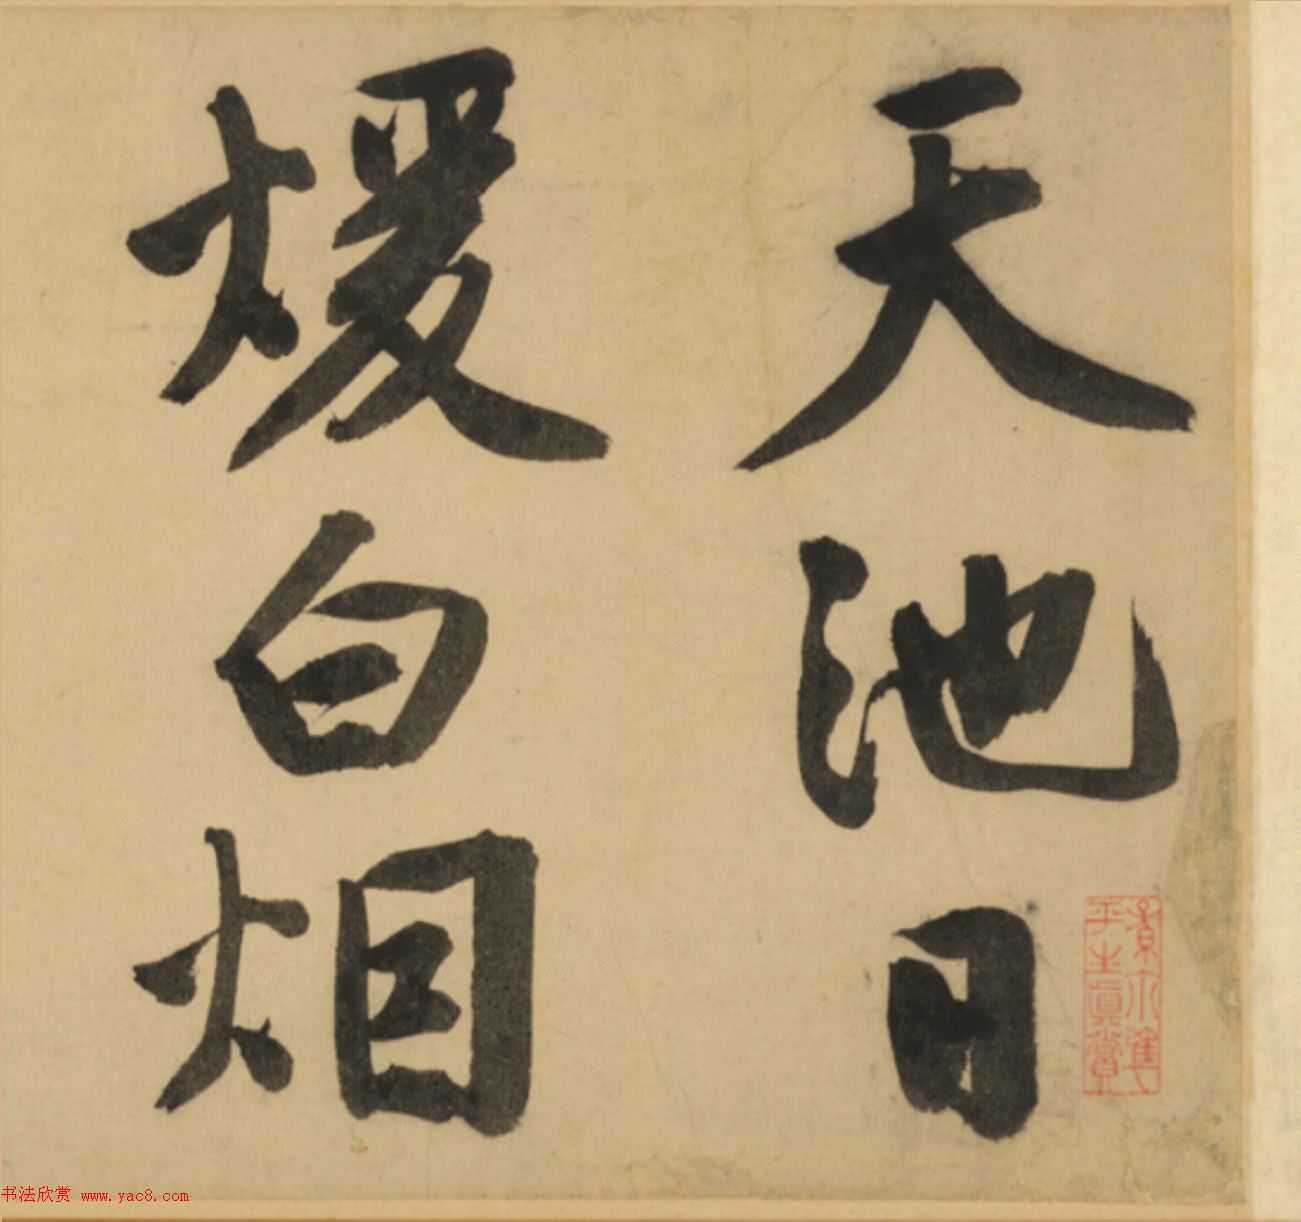 天池日
煖白烟
平生真賞
书法欣赏 www.yac8.com